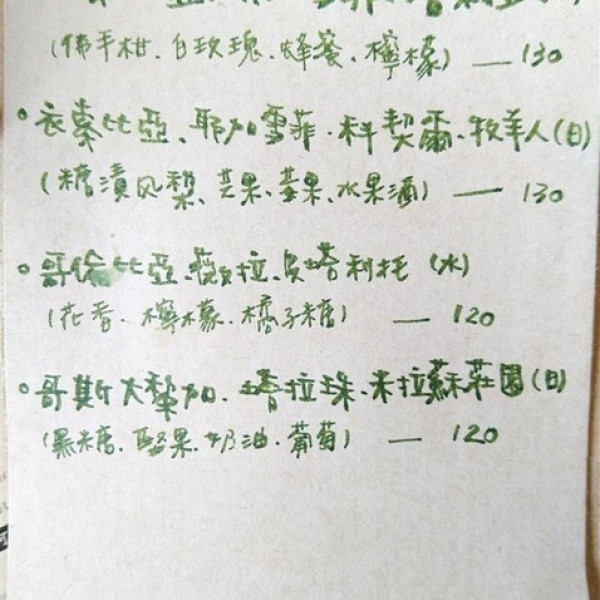 (佛手柑、白玫瑰、蜂蜜、檸檬) — 130
• 衣索比亞、耶加雪菲·科契爾·牧羊人(日)
(糖漬风梨、芒果、莓果、水果酒) — 130
• 哥倫比亞·薇拉·皮塔利托 (水)
(花香·檸檬·橘子糖) — 120
• 哥斯大黎加·塔拉珠·米拉蘇莊園(日)
(黑糖、堅果、奶油·葡萄) — 120